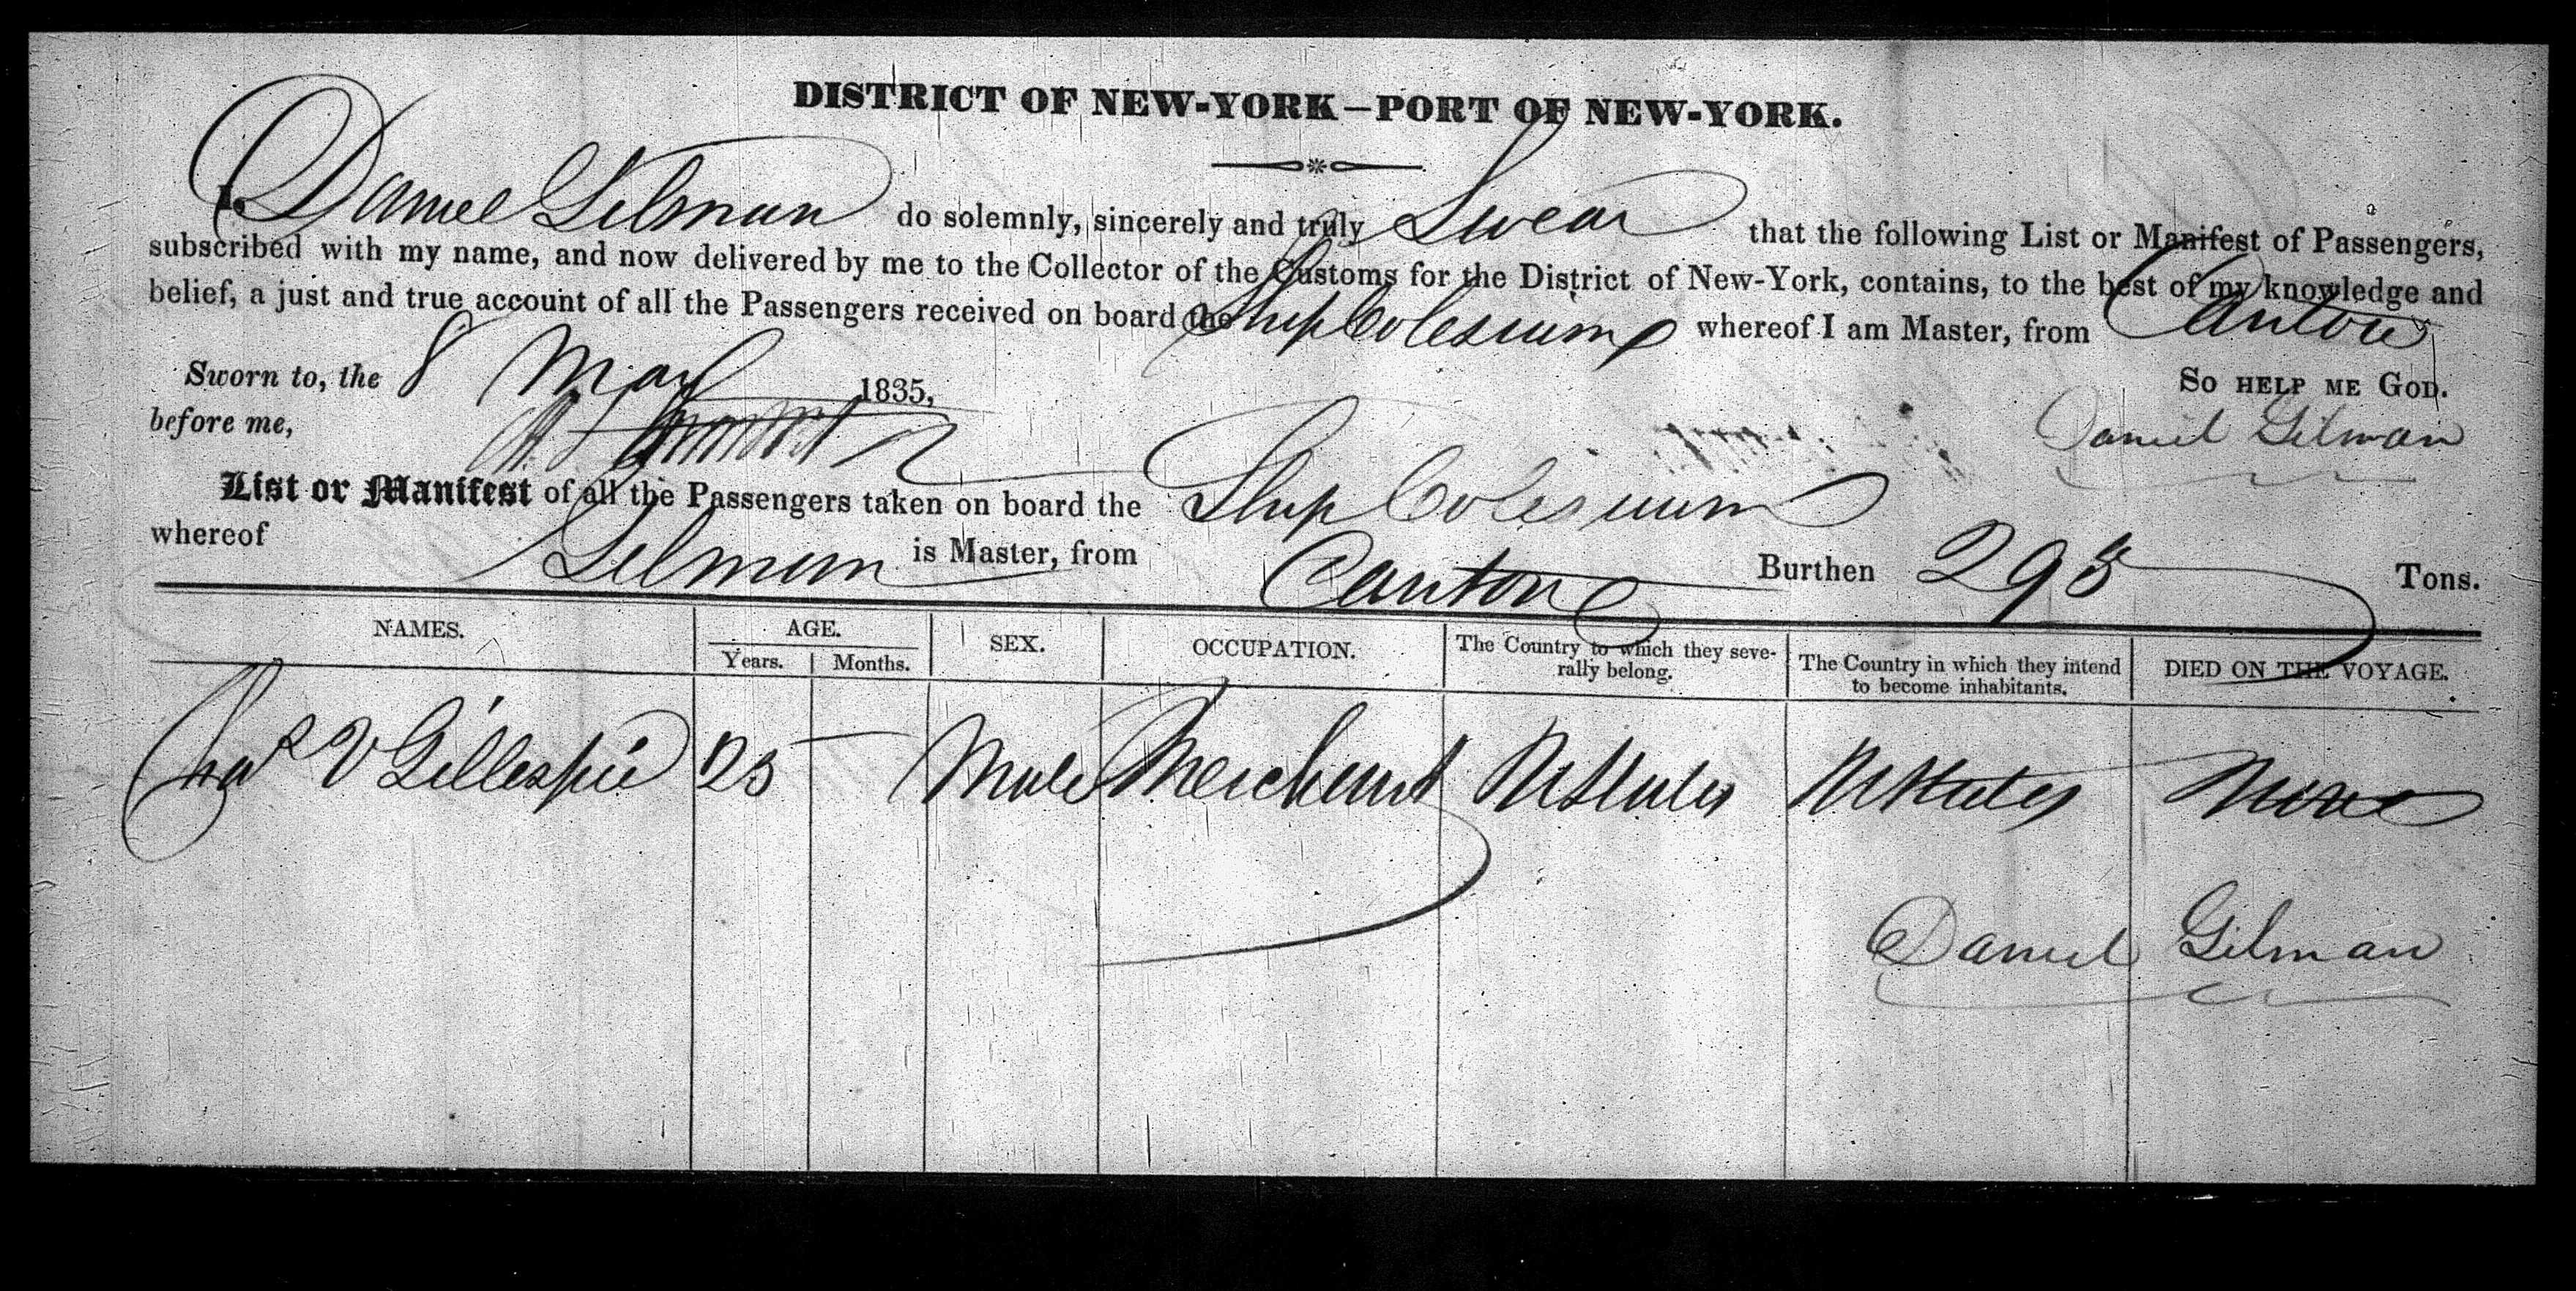 DISTRICT OF NEW-YORK—PORT OF NEW-YORK.
I, Daniel Gilman do solemnly, sincerely and truly Swear that the following List or Manifest of Passengers,
subscribed with my name, and now delivered by me to the Collector of the Customs for the District of New-York, contains, to the best of my knowledge and
belief, a just and true account of all the Passengers received on board the Ship Coliseum whereof I am Master, from Canton
Sworn to, the 8 May 1835, So help me God.
before me, Daniel Gilman
List or Manifest of all the Passengers taken on board the Ship Coliseum
whereof Gilman is Master, from Canton Burthen 295 Tons.
NAMES. AGE. SEX. OCCUPATION. The Country to which they seve- The Country in which they intend DIED ON THE VOYAGE.
Years. Months. rally belong. to become inhabitants.
Chas V Gillespie 25 — Male Merchant U States U States None
Daniel Gilman